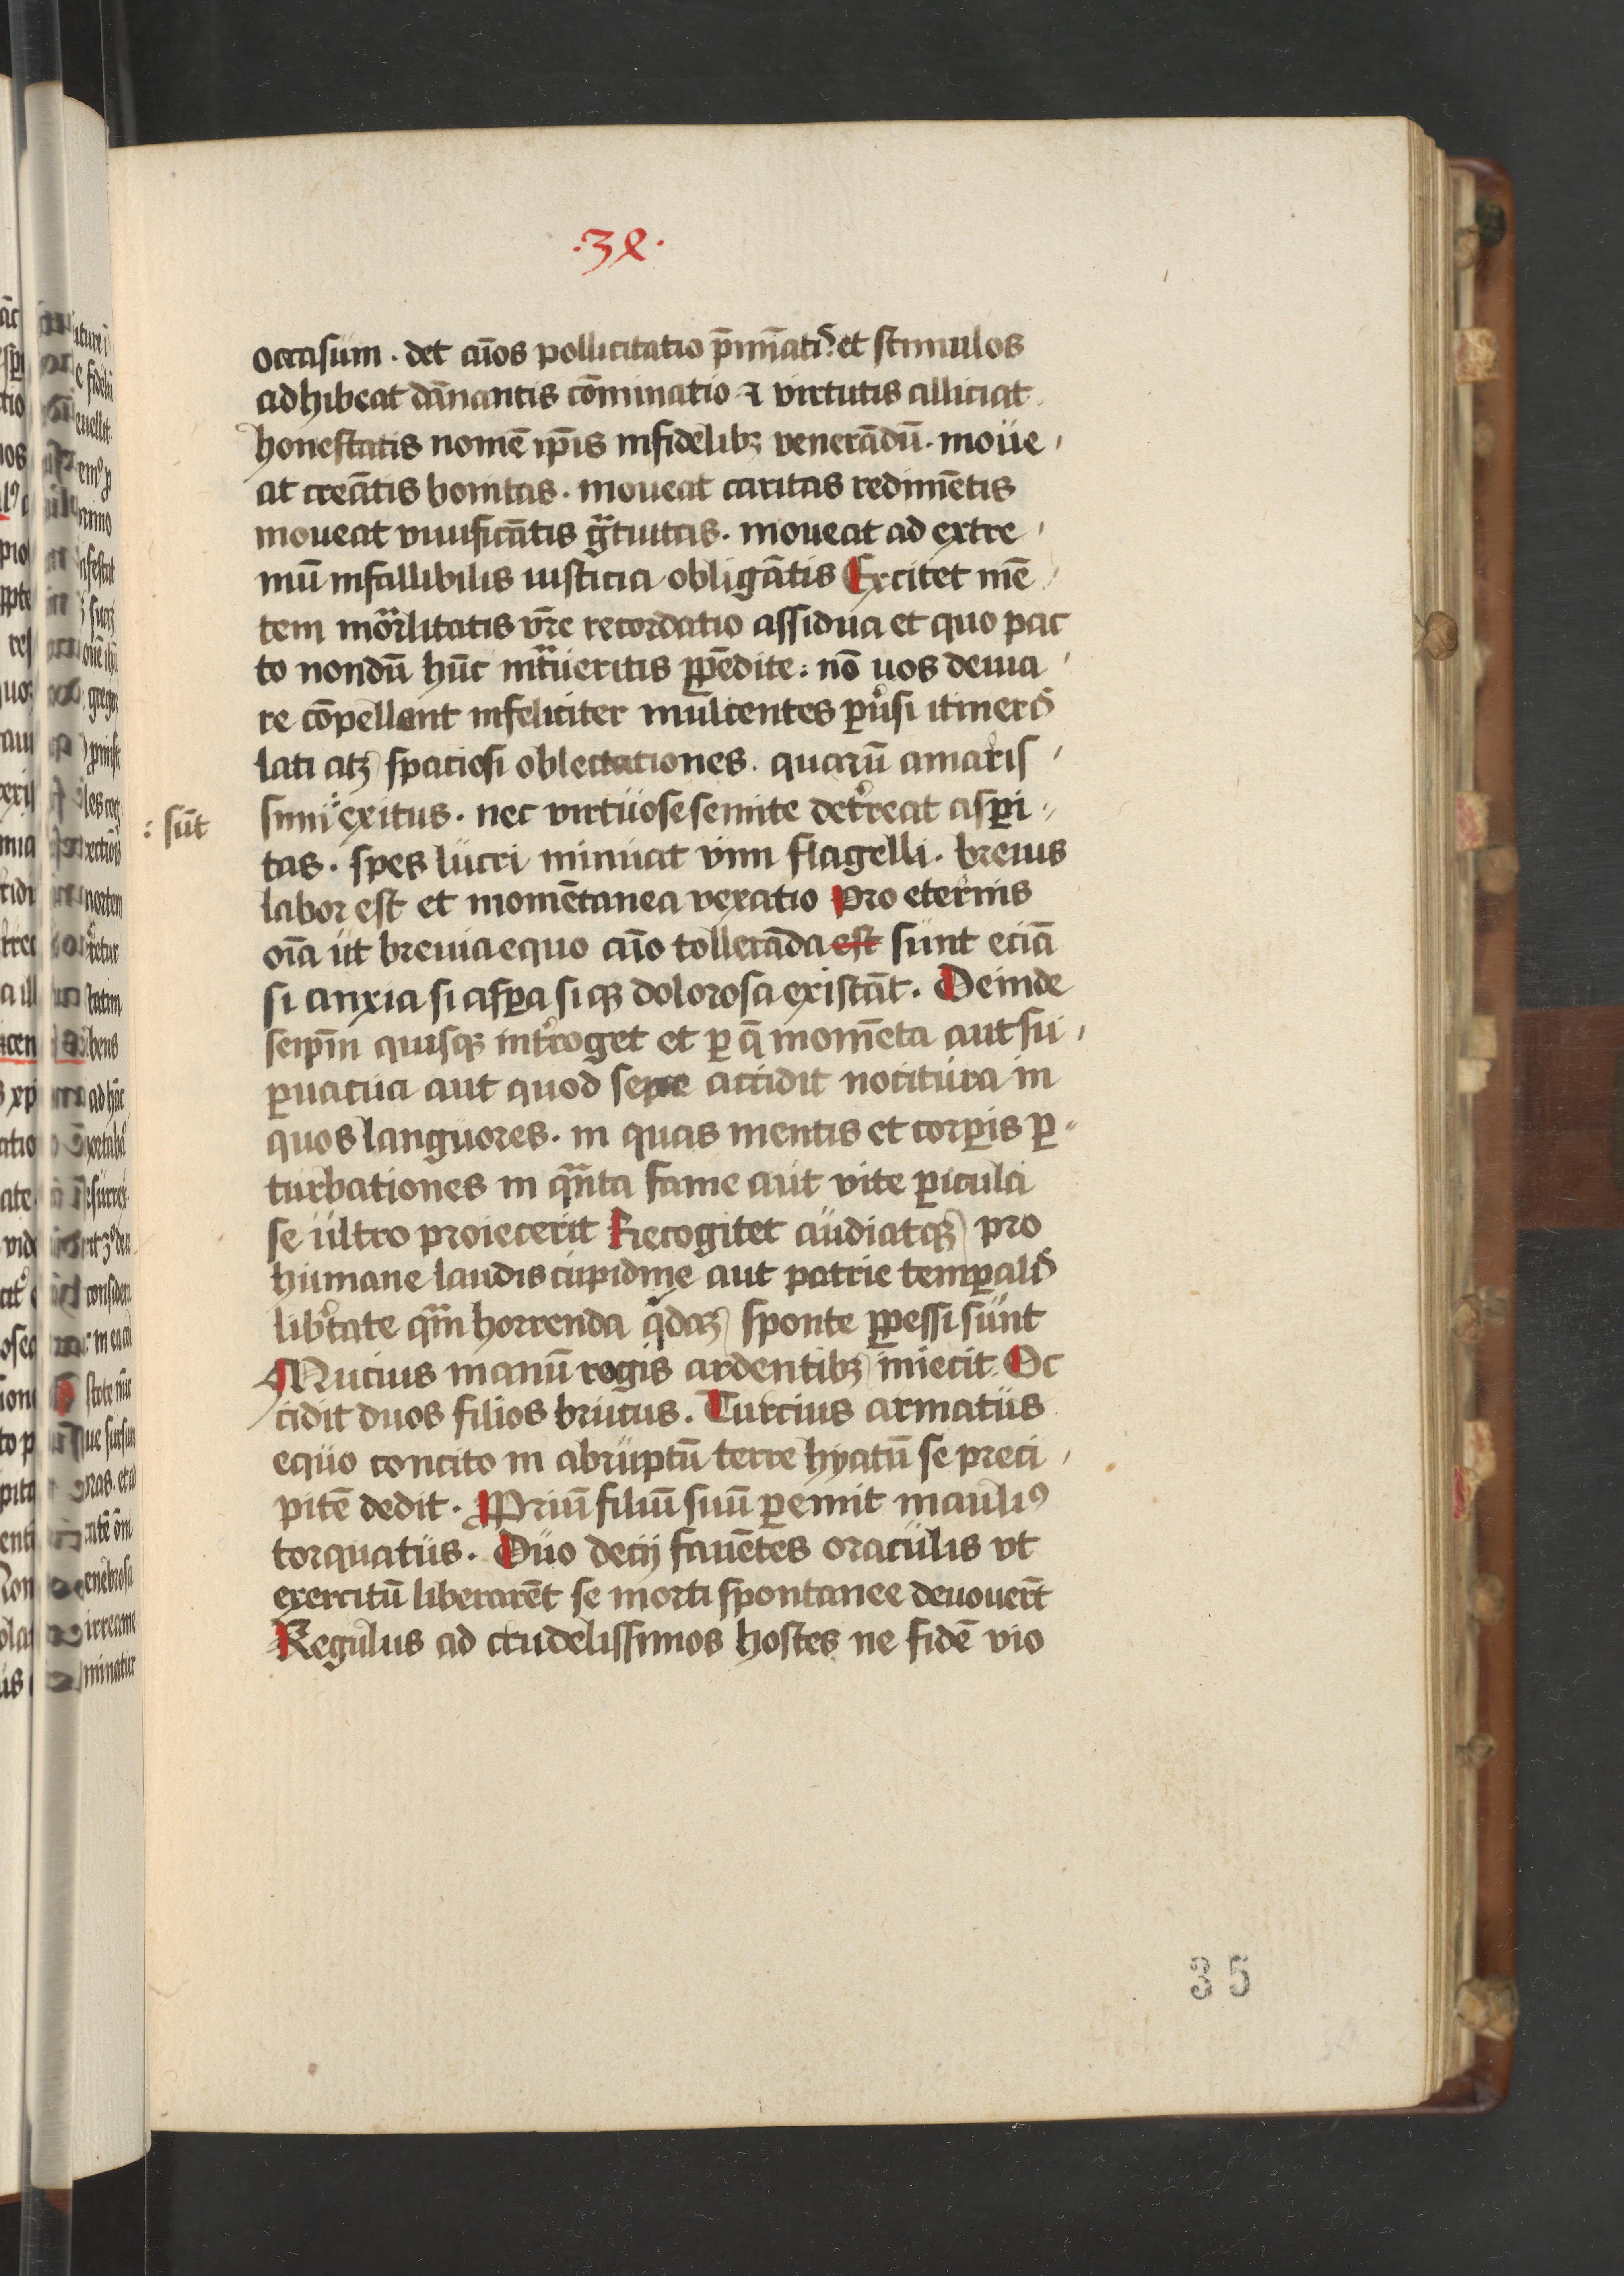 .34.
occasum . det aīos pollicitatio p̄mīatis et stimulos
adhibeat dānantis cōminatio ⁊ virtutis alliciat
honestatis nomē ip̄is infidelibꝫ venerādū . moue
at creātis bonitas . moueat caritas redimētis
moueat viuificātis gͣtuitas . moueat ad extre
mū infallibilis iusticia obligātis Excitet mē
tem morͣlitatis vr̄e recordatio assidua et quo pac
to nondū hūc intͣueritis ꝑpēdite . nō uos deuia
re cōpellant infeliciter mulcentes ꝑuͥsi itineris
lati atqꝫ spaciosi oblectationes . quarū amaris
simi exitus . nec virtuose semite detͥreat aspi
: sūt
tas . spes lucri minuat vim flagelli . breuis
labor est et momētanea vexatio Pro eternis
oīa ut breuia equo aīo tollerāda est sunt eciā
si anxia si aspa si qꝫ dolorosa existāt . Deinde
seip̄m quisqꝫ intͥroget et ꝑ q̄ momēta aut su
ꝑuacua aut quod sepe accidit nocitura in
quos languores . in quas mentis et corꝑis ꝑ
turbationes in qͣnta fame aut vite ꝑicula
se ultro proiecerit Recogitet audiatqꝫ pro
humane laudis cupidine aut patrie temꝑalis
libͥtate qͣm horrenda q̊daꝫ sponte ꝑpessi sunt
Mucius manū rogis ardentibꝫ īniecit . Oc
cidit duos filios brutus . Curcius armatus
equo concito in abruptū terre hyatū se preci
pitē dedit . Ꝓpriū filiū suū ꝑemit maulꝰ
torquatus . Duo decij fauētes oraculis vt
exercitū liberarēt se morti spontanee deuouerūt
Regulus ad crudelissimos hostes ne fidē vio
35